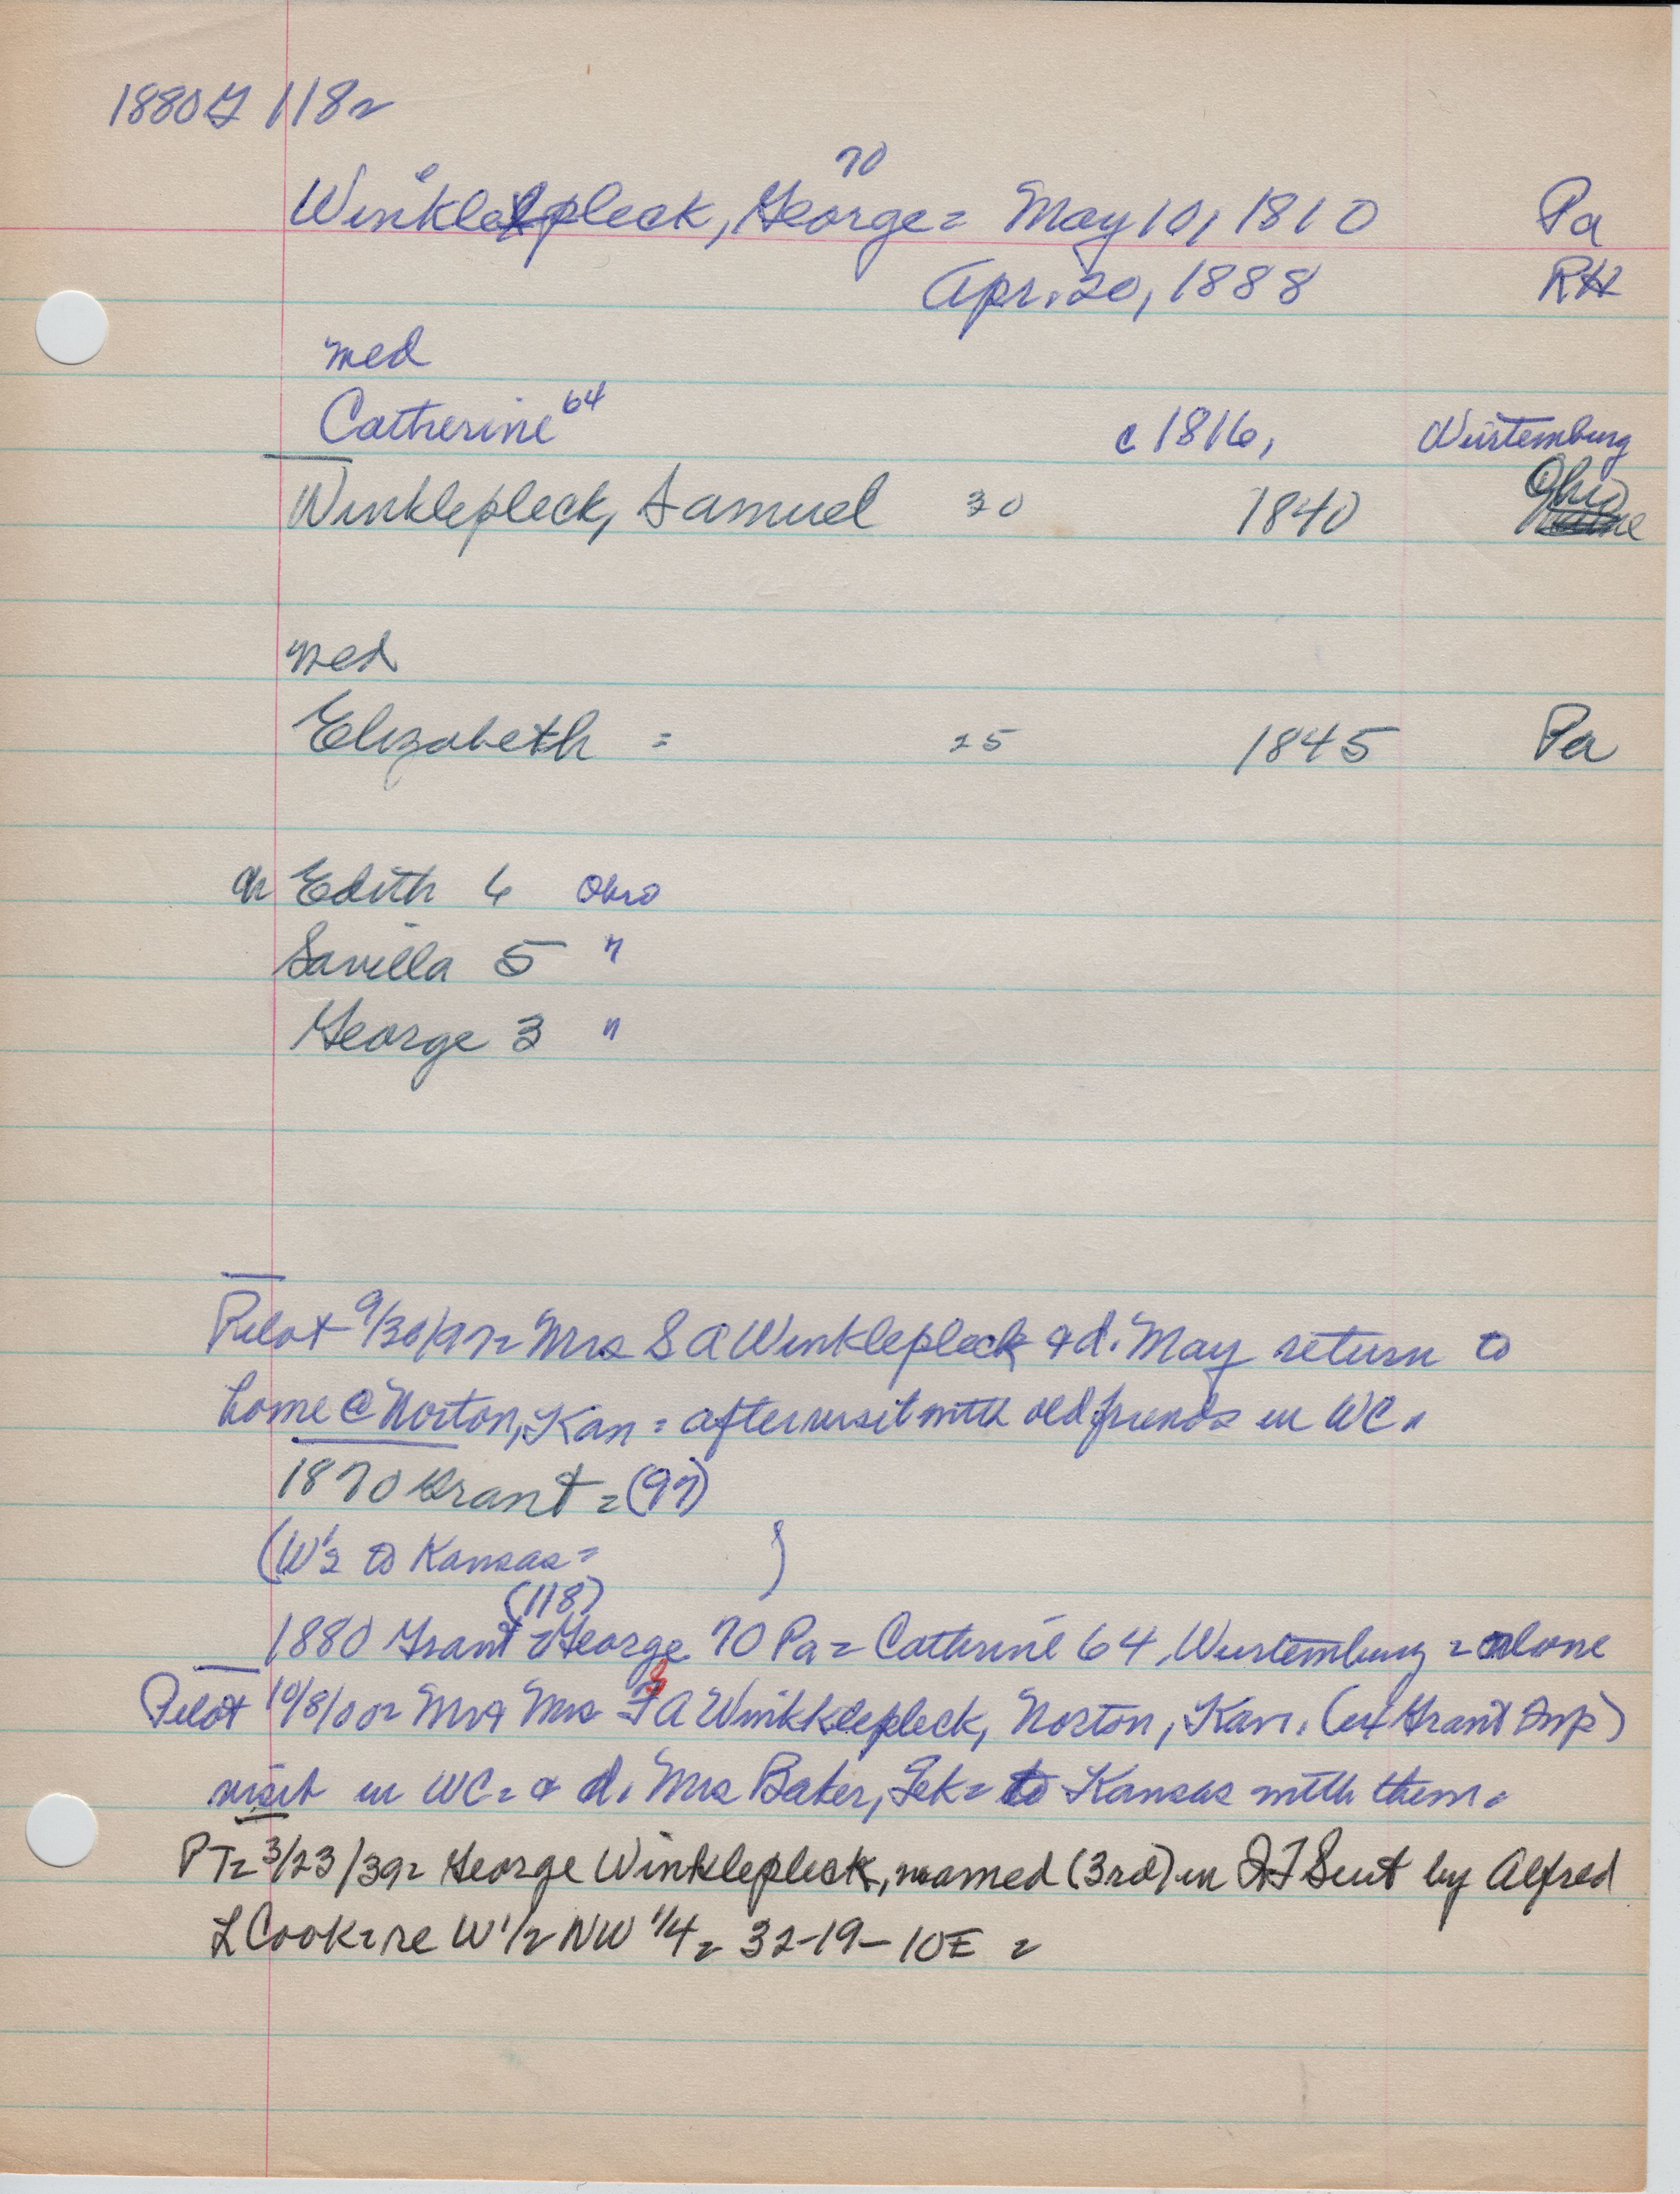 1880 G 118=
70
Winklepleck, George = May 10, 1810 Pa
Apr. 20, 1888 RH
med
Catherine 64 c 1816, Würtemburg
Winklepleck, Samuel 30 1840 Ohio
med
Elizabeth = 25 1845 Pa
ch Edith 6 Ohio
Savilla 5 "
George 3 "
Pilot 9/30/97= Mrs S A Winklepleck & d. May return to
home @ Norton, Kan = after visit with old friends in WC.
1870 Grant = (97)
(W's to Kansas = )
(118)
1880 Grant = George 70 Pa = Catherine 64, Wurtemburg = alone
Pilot 10/8/00= Mr & Mrs S A Winklepleck, Norton, Kan. (of Grant Twp)
visit in WC. = & d. Mrs Baker, Tek = to Kansas with them.
PT= 3/23/39= George Winklepleck, named (3rd) in QT Suit by Alfred
L Cook = re W 1/2 NW 1/4 = 32-19-10E =